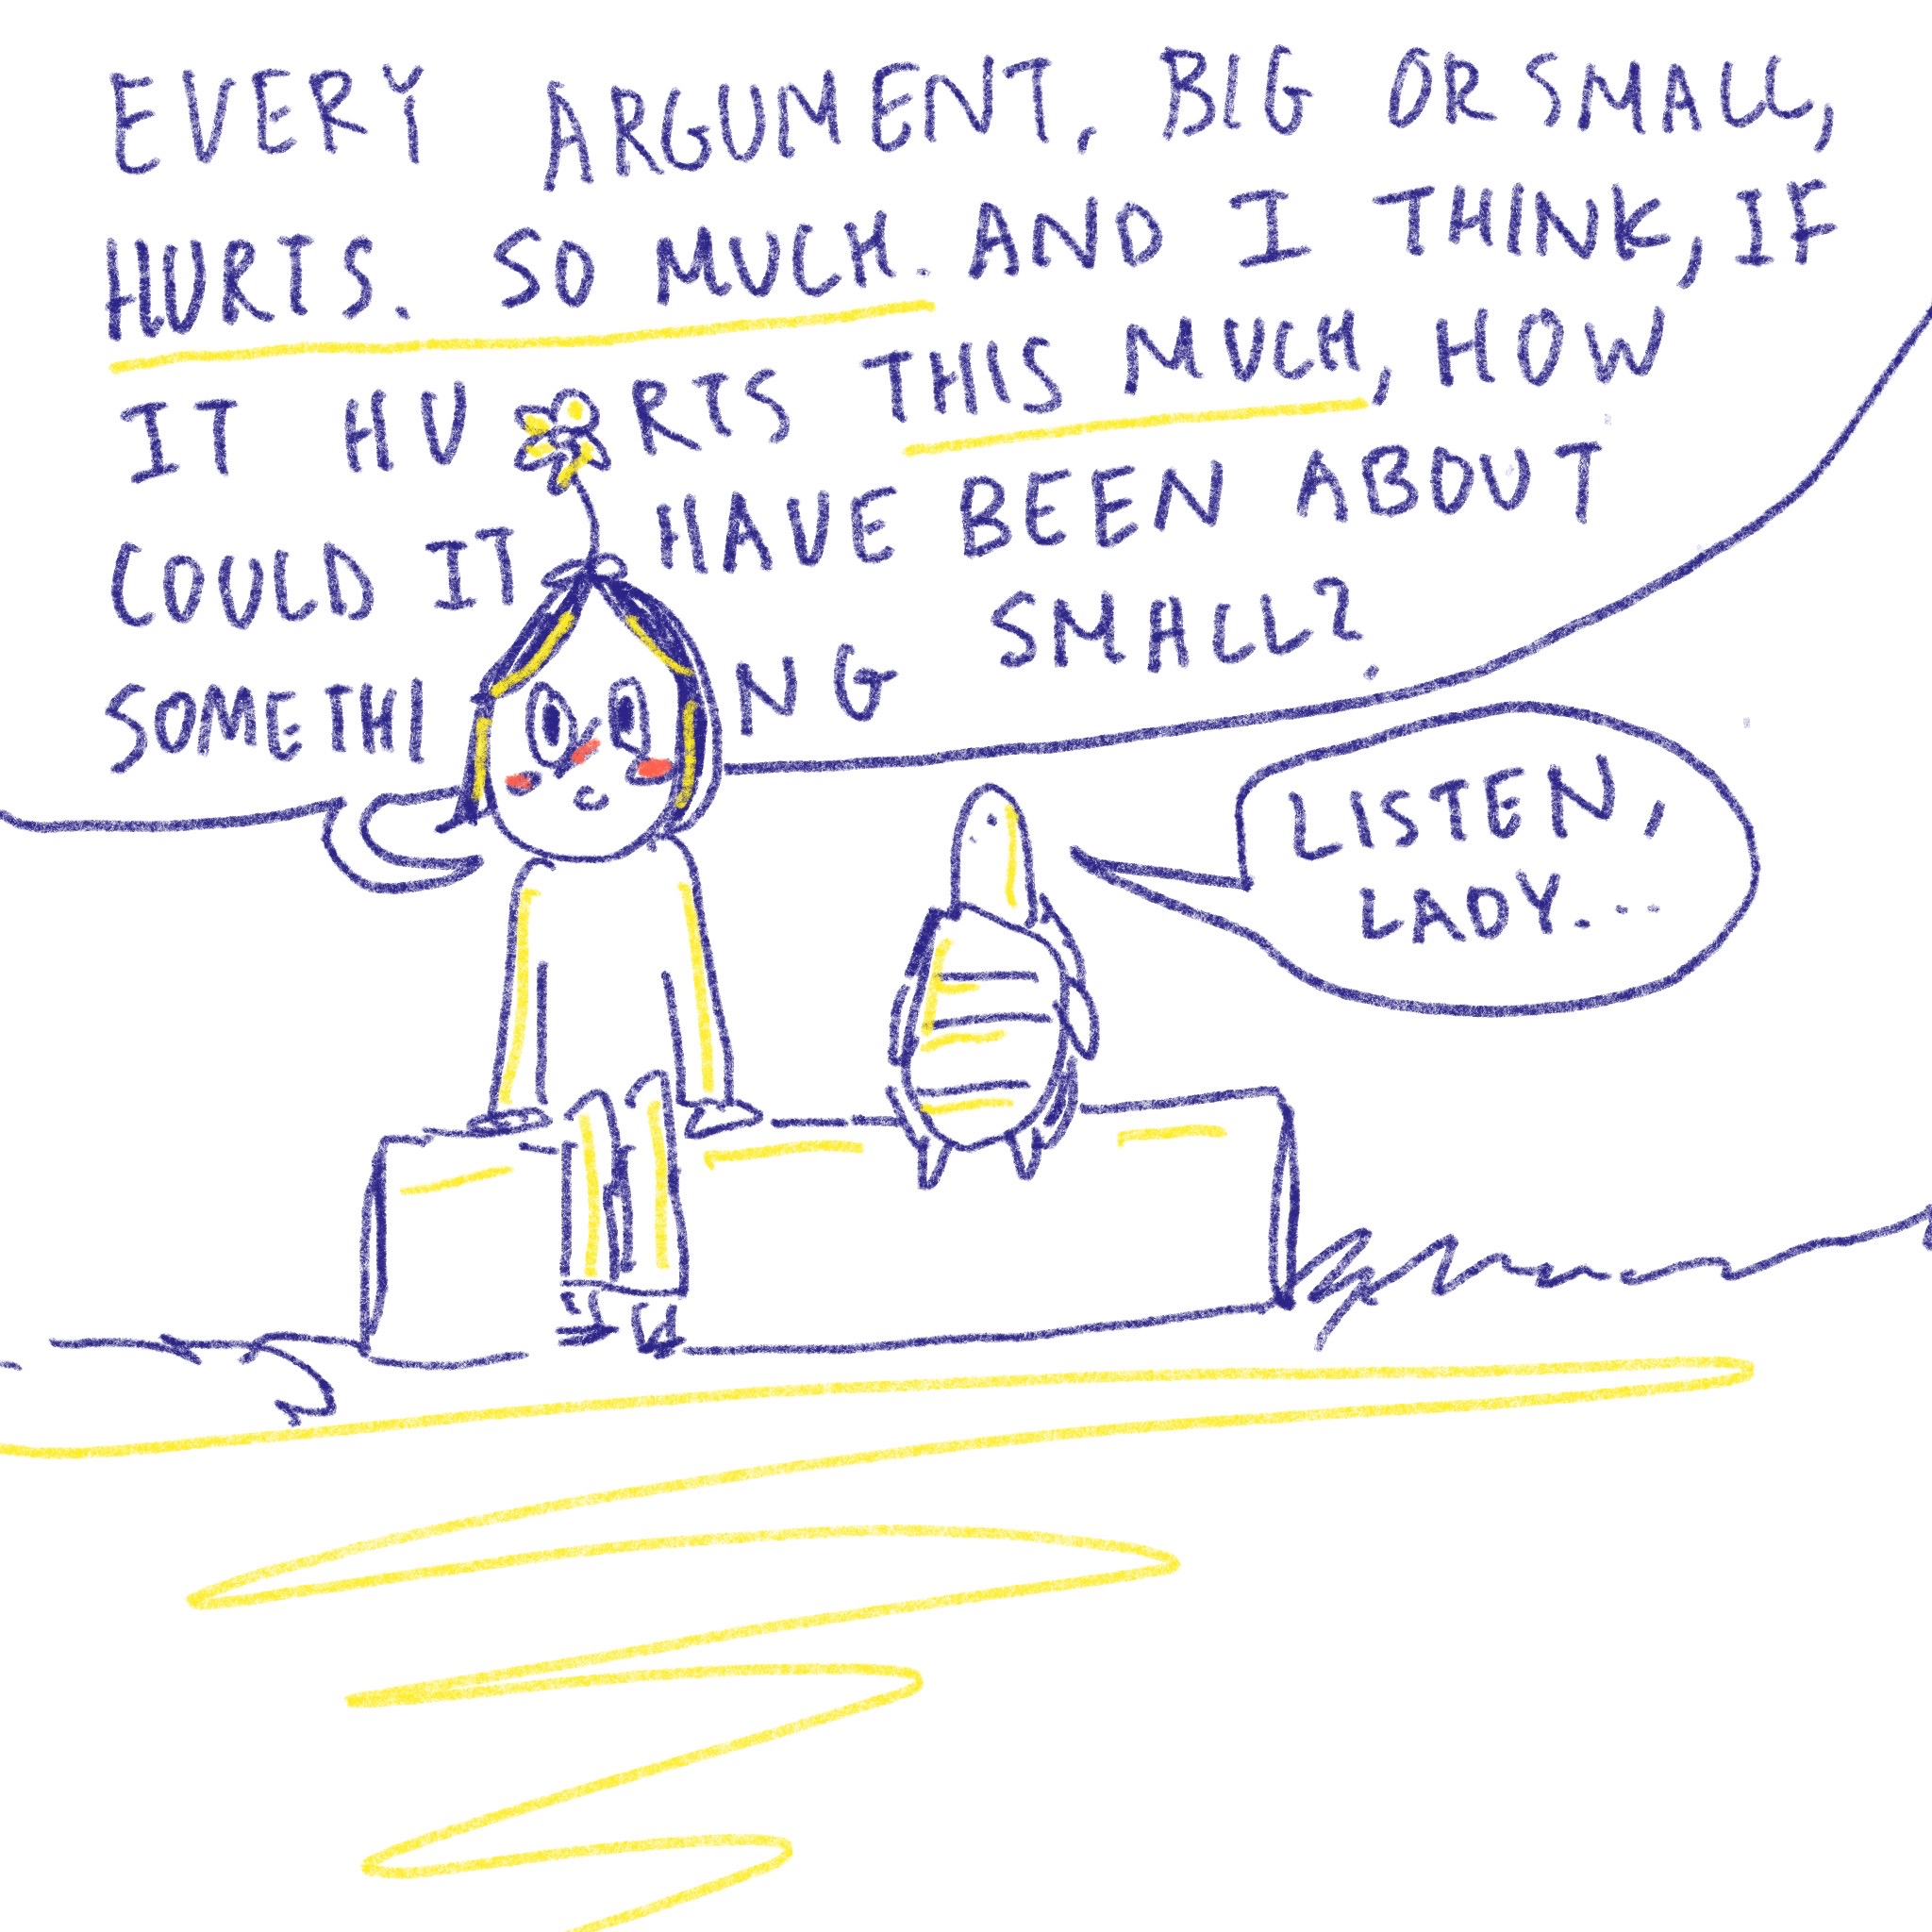 EVERY ARGUMENT, BIG OR SMALL,
HURTS. SO MUCH. AND I THINK, IF
IT HURTS THIS MUCH, HOW
COULD IT HAVE BEEN ABOUT
SOMETHING SMALL?
LISTEN,
LADY...